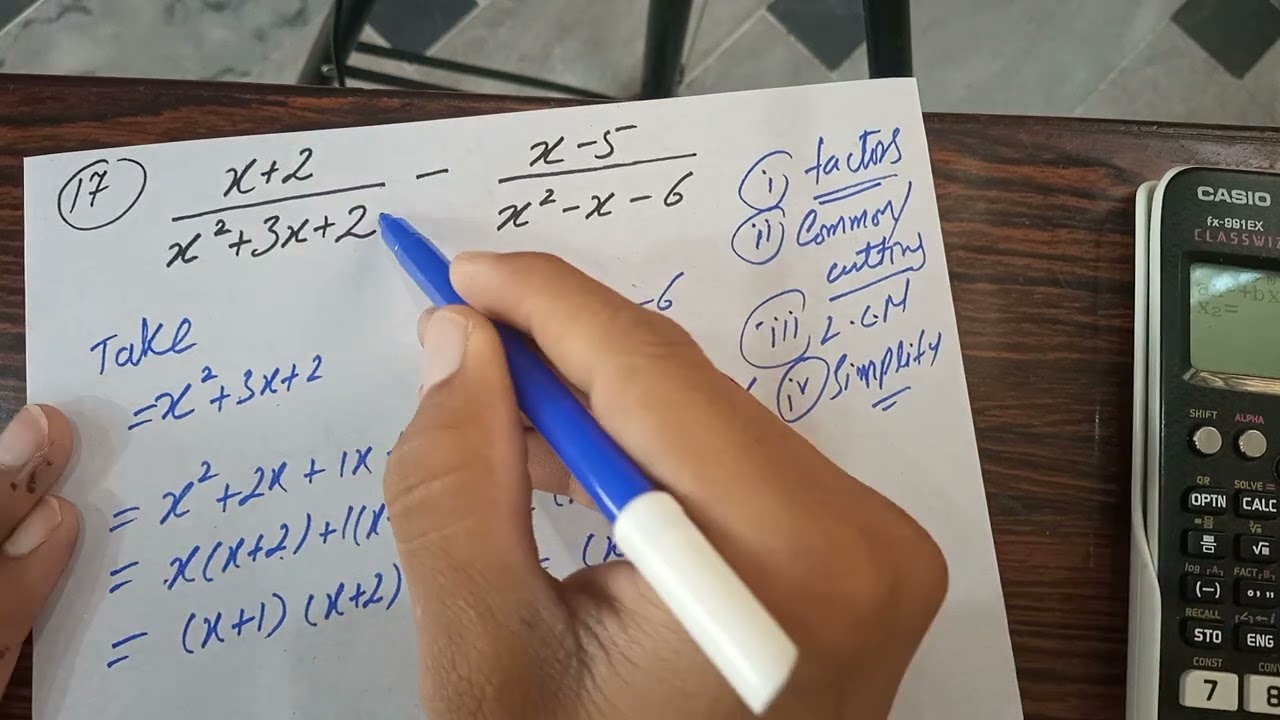 17 x+2 / x²+3x+2 − x−5 / x²−x−6
i factors
ii Common
cutting
iii L.CM
iv Simplify
−6
Take
=x²+3x+2
= x²+2x+1x
= x(x+2)+1(x
= (x+1)(x+2)
= (x
CASIO
fx-991EX
CLASSWIZ
x₂=
SHIFT
ALPHA
QR
SOLVE =
OPTN
CALC
(−)
RECALL
STO
ENG
CONST
7
8